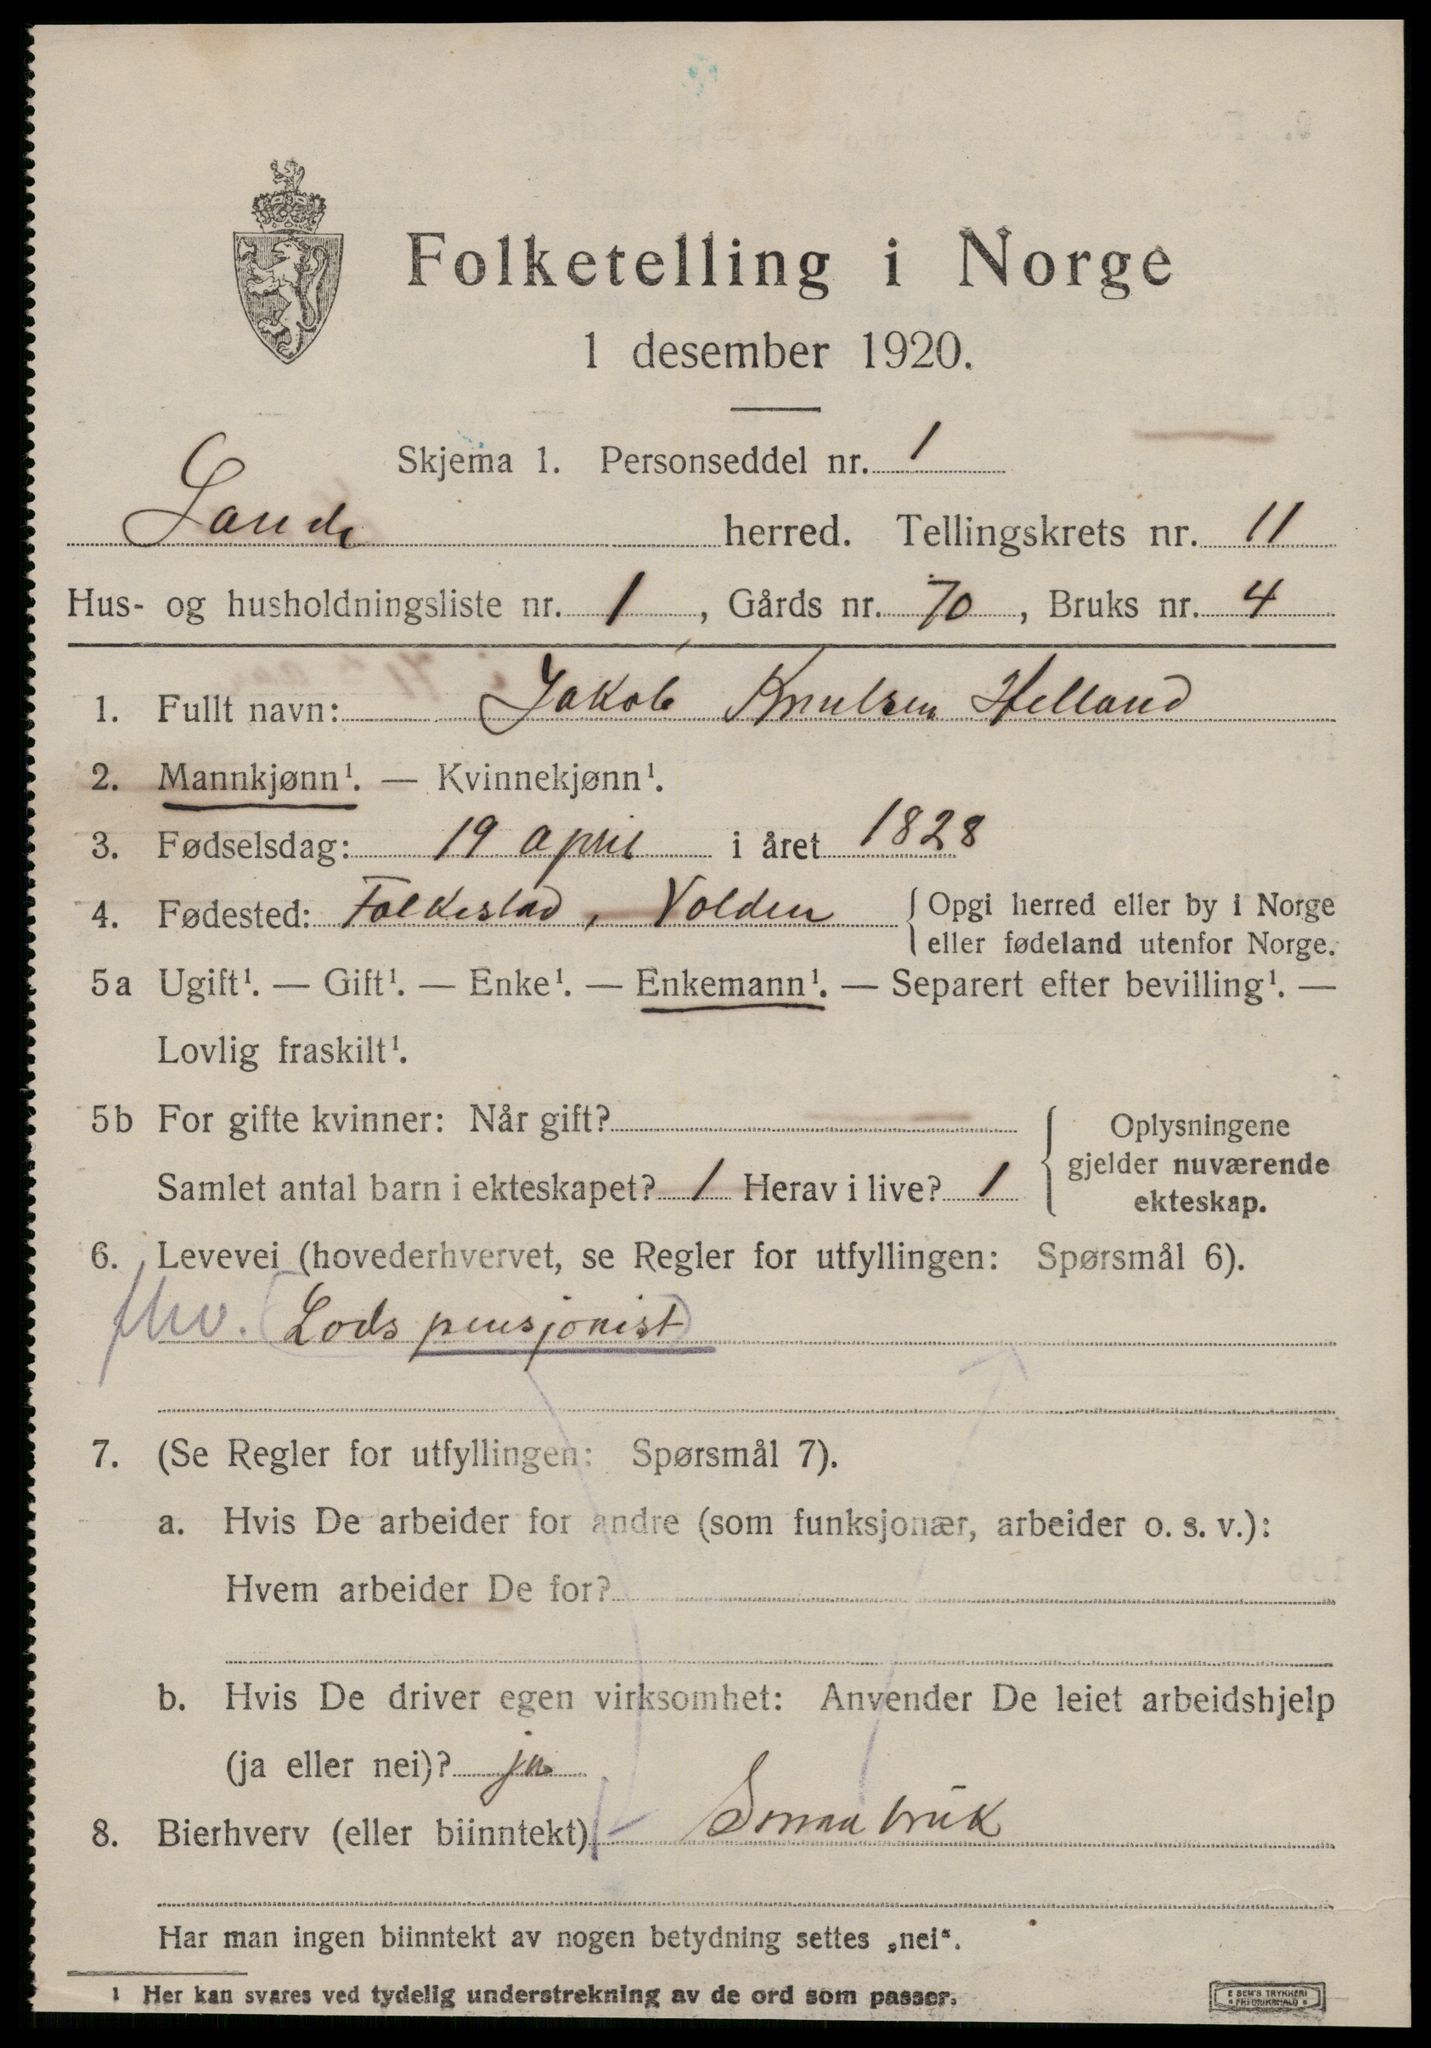 Folketelling i Norge
1 desember 1920.
Skjema 1. Personseddel nr. 1
Sande herred. Tellingskrets nr. 11
Hus- og husholdningsliste nr. 1, Gårds nr. 70, Bruks nr. 4
1. Fullt navn: Jakob Knutsen Helland
2. Mannkjønn¹. — Kvinnekjønn¹.
3. Fødselsdag: 19 april i året 1828
4. Fødested: Folkestad, Volden { Opgi herred eller by i Norge
eller fødeland utenfor Norge.
5a Ugift¹. — Gift¹. — Enke¹. — Enkemann¹. — Separert efter bevilling¹. —
Lovlig fraskilt¹.
5b For gifte kvinner: Når gift?
Samlet antal barn i ekteskapet? 1 Herav i live? 1
{ Oplysningene
gjelder nuværende
ekteskap.
6. Levevei (hovederhvervet, se Regler for utfyllingen: Spørsmål 6).
fhv. (Lods pensjonist)
7. (Se Regler for utfyllingen: Spørsmål 7).
a. Hvis De arbeider for andre (som funksjonær, arbeider o. s. v.):
Hvem arbeider De for?
b. Hvis De driver egen virksomhet: Anvender De leiet arbeidshjelp
(ja eller nei)? ja
8. Bierhverv (eller biinntekt) Smaabruk
Har man ingen biinntekt av nogen betydning settes „nei“.
1 Her kan svares ved tydelig understrekning av de ord som passer.
E SEM'S TRYKKERI
FREDRIKSHALD